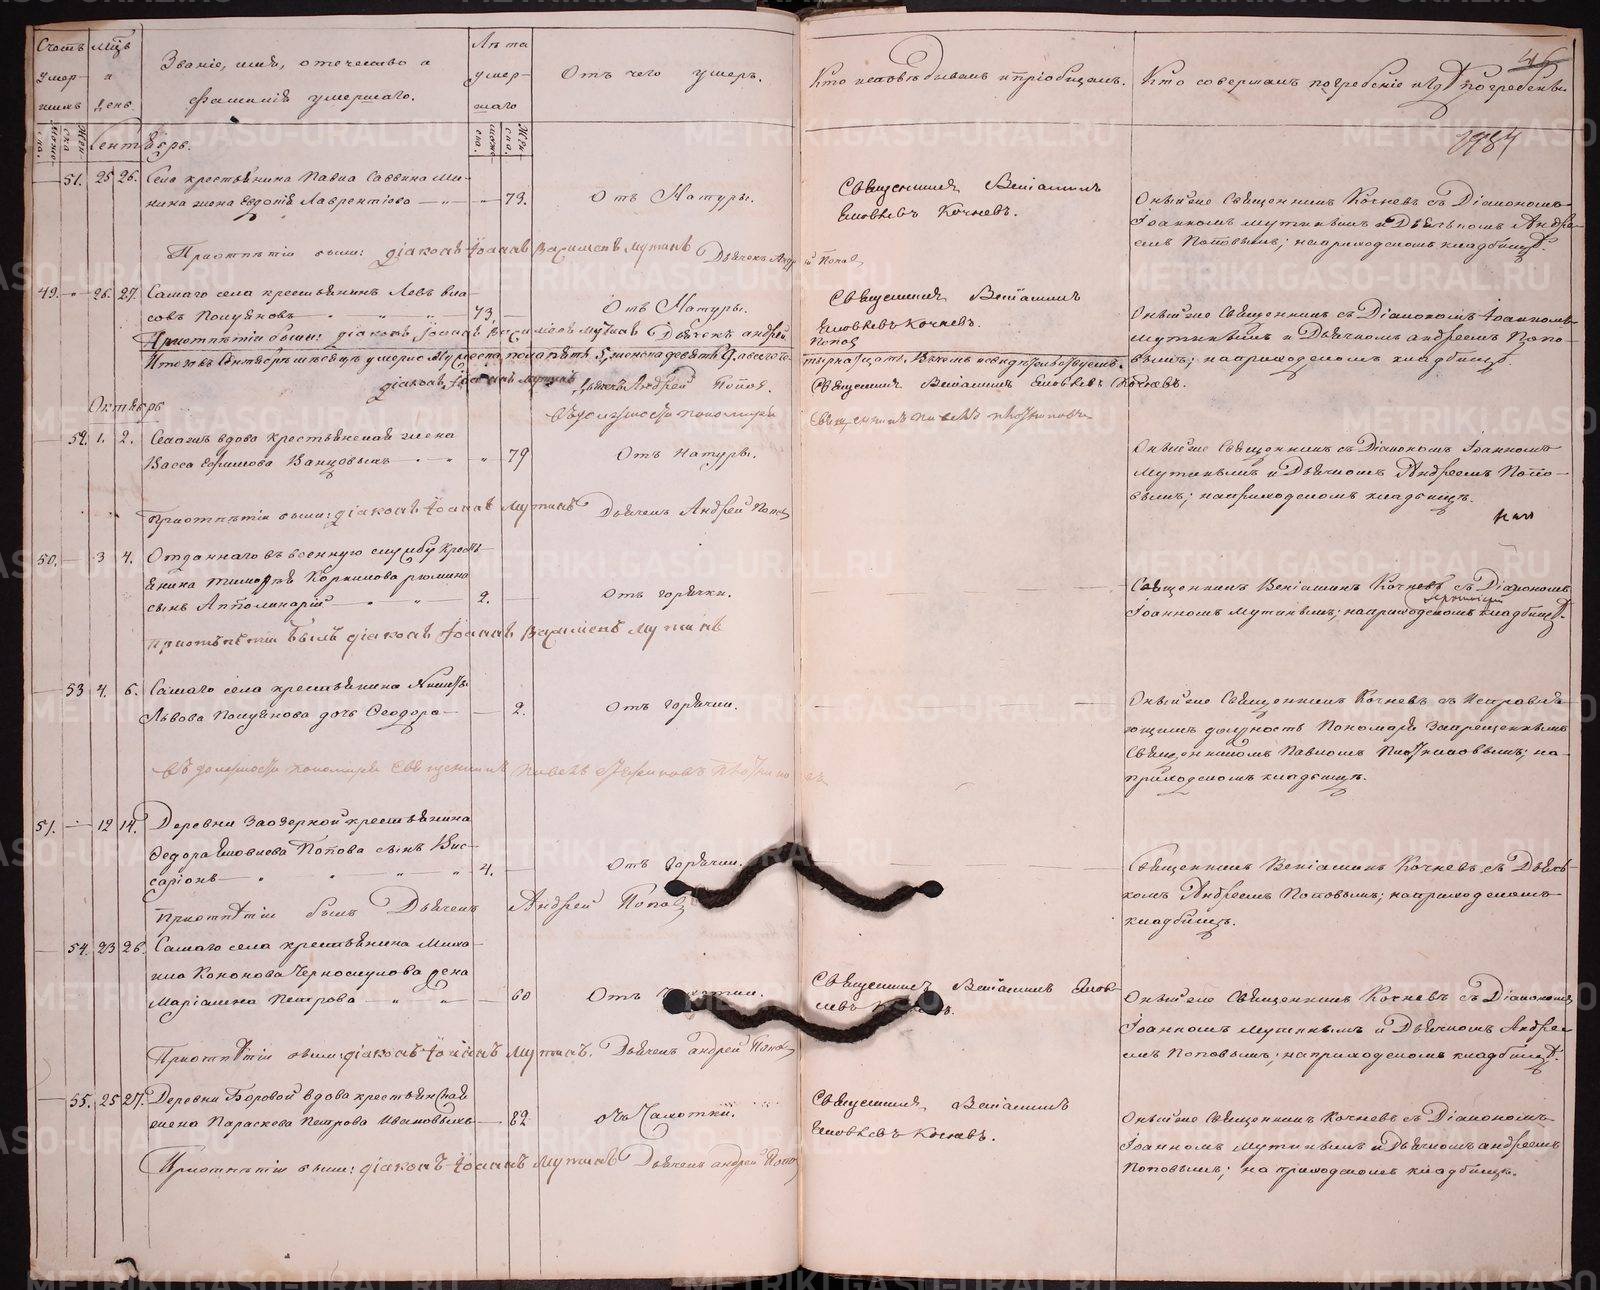 Счетъ умер-шихъ
Мцъ и день
Званіе, имя, отечество и фамилія умершаго.
Лѣта умер-шаго
Отъ чего умеръ.
Кто исповѣдывалъ и пріобщалъ.
Кто совершалъ погребеніе и гдѣ погребены.
46
1984
Сентябрь.
51. 25 26. Села крестьянина Павла Саввина Ми-
нина жена Евдотія Лаврентіева 73.
Отъ Натуры.
Священникъ Веніаминъ
Іаковлевъ Кочневъ.
Оный же Священникъ Кочневъ съ Діакономъ
Іоанномъ Мутинымъ и Дьячкомъ Андре-
емъ Поповымъ; на приходскомъ кладбищѣ.
При отпѣтіи были: діаконъ Іоаннъ Мутинъ Дьячекъ Андрей Попов
49. 26. 27. Самаго села крестьянинъ Левъ Вла-
совъ Полуяновъ 73.
Отъ Натуры.
Священникъ Веніаминъ
Іаковлевъ Кочневъ.
Оный же Священникъ съ Діакономъ Іоанномъ
Мутинымъ и Дьячкомъ Андреемъ Попо-
вымъ; на приходскомъ кладбищѣ
При отпѣтіи были: діаконъ Іоаннъ Мутинъ Дьячекъ Андрей
Попов
Итого въ Сентябрѣ мѣсяцѣ умерло Муж. пола пять 5, женска девять 9, а всего че-
тырнадцать.
діаконъ Іоаннъ Мутинъ Дьячекъ Андрей Попов.
Священникъ Веніаминъ Іаковлевъ Кочневъ.
Октябрь
въ должности пономаря
священникъ Павелъ
52. 1. 2. вдова крестьянская жена
Васса Ефимова 79
Отъ Натуры.
Оный же Священникъ съ Діакономъ Іоанномъ
Мутинымъ и Дьячкомъ Андреемъ Попо-
вымъ; на приходскомъ кладбищѣ.
При отпѣтіи были: діаконъ Іоаннъ Мутинъ Дьячекъ Андрей Попов
50. 3 4. Отданнаго въ военную службу кресть-
янина Тимофея Корнилова
сынъ Апполинарій 2.
Отъ горячки.
Священникъ Веніаминъ Кочневъ съ Діакономъ
Іоанномъ Мутинымъ; на приходскомъ кладбищѣ.
При отпѣтіи былъ діаконъ Іоаннъ Мутинъ
53 4. 6. Самаго села крестьянина Никиты
Львова Полуянова дочь Феодора 2.
Отъ горячки.
Оный же Священникъ Кочневъ съ исправля-
ющимъ должность Пономаря Запрещеннымъ
Священникомъ Павломъ; на
приходскомъ кладбищѣ.
въ должности пономаря священникъ Павелъ
51. 12 14. Деревни Заозерной крестьянина
Федора Яковлева Попова сынъ Вис-
саріонъ 4.
Отъ горячки.
Священникъ Веніаминъ Кочневъ съ Дьяч-
комъ Андреемъ Поповымъ; на приходскомъ
кладбищѣ.
При отпѣтіи былъ Дьячекъ Андрей Попов
54. 23 26. Самаго села крестьянина Миха-
ила Кононова Черноскулова жена
Маріамна Петрова 60
Отъ
Священникъ Веніаминъ Іаков-
левъ
Оный же Священникъ Кочневъ съ Діакономъ
Іоанномъ Мутинымъ и Дьячкомъ Андре-
емъ Поповымъ; на приходскомъ кладбищѣ.
При отпѣтіи были: діаконъ Іоаннъ Мутинъ. Дьячекъ Андрей Попов
55. 25 27. Деревни Боровой вдова крестьянская
жена Параскева Петрова Ивановыхъ 82
отъ Чахотки.
Священникъ Веніаминъ
Іаковлевъ Кочневъ.
Оный же Священникъ Кочневъ съ Діакономъ
Іоанномъ Мутинымъ и Дьячкомъ Андреемъ
Поповымъ; на приходскомъ кладбищѣ.
При отпѣтіи были: діаконъ Іоаннъ Мутинъ Дьячекъ Андрей Попов
METRIKI.GASO-URAL.RU